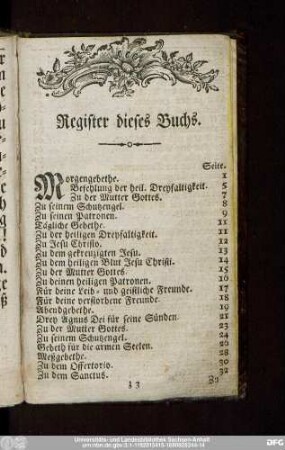 Register dieses Buchs.
Seite.
Morgengebethe. 1
Befehlung der heil. Dreyfaltigkeit. 5
Zu der Mutter Gottes. 7
Zu seinem Schutzengel. 8
Zu seinen Patronen. 9
Tägliche Gebethe. 11
Zu der heiligen Dreyfaltigkeit. 11
Zu Jesu Christo. 12
Zu dem gekreuzigten Jesu. 13
Zu dem heiligen Blut Jesu Christi. 14
Zu der Mutter Gottes. 15
Zu deinen heiligen Patronen. 16
Für deine Leib- und geistliche Freunde. 17
Für deine verstorbene Freunde. 18
Abendgebethe. 19
Drey Agnus Dei für seine Sünden. 21
Zu der Mutter Gottes. 23
Zu seinem Schutzengel. 24
Gebeth für die armen Seelen. 26
Meßgebethe. 28
Zu dem Offertorio. 30
Zu dem Sanctus. 32
Zu
Universitäts- und Landesbibliothek Sachsen-Anhalt
DFG